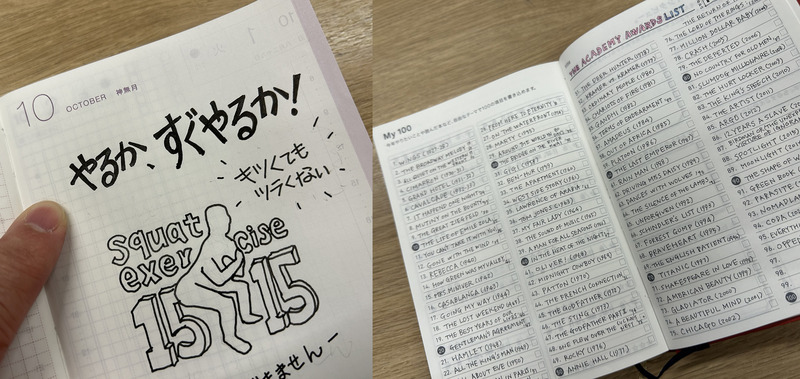 10 OCTOBER 神無月
やるか、すぐやるか!
キツくても
ツラくない
squat
exercise
15 15
My 100
1. WINGS (1927-28)
2. THE BROADWAY MELODY
4. CIMARRON
5. GRAND HOTEL
6. CAVALCADE
7. IT HAPPENED ONE NIGHT
8. MUTINY ON THE BOUNTY
9. THE GREAT ZIEGFELD
10. THE LIFE OF EMILE ZOLA
11. YOU CAN'T TAKE IT WITH YOU
12. GONE WITH THE WIND
13. REBECCA (1940)
14. HOW GREEN WAS MY VALLEY
15. MRS. MINIVER (1942)
16. CASABLANCA (1943)
17. GOING MY WAY (1944)
18. THE LOST WEEKEND (1945)
19. THE BEST YEARS OF
20. GENTLEMAN'S AGREEMENT
21. HAMLET (1948)
22. ALL THE KING'S MEN (1949)
ALL ABOUT EVE (1950)
26. FROM HERE TO ETERNITY
27. ON THE WATERFRONT (1954)
28. MARTY (1955)
30. THE BRIDGE ON THE RIVER
31. GIGI (1958)
32. BEN-HUR (1959)
33. THE APARTMENT (1960)
34. WEST SIDE STORY (1961)
35. LAWRENCE OF ARABIA
36. TOM JONES (1963)
37. MY FAIR LADY (1964)
38. THE SOUND OF MUSIC (1965)
39. A MAN FOR ALL SEASONS
40. IN THE HEAT OF THE NIGHT
41. OLIVER! (1968)
42. MIDNIGHT COWBOY (1969)
43. PATTON (1970)
44. THE FRENCH CONNECTION
45. THE GODFATHER (1972)
46. THE STING (1973)
47. THE GODFATHER PART II
49. ROCKY (1976)
50. ANNIE HALL (1977)
THE ACADEMY AWARDS LIST
51. THE DEER HUNTER (1978)
52. KRAMER VS. KRAMER (1979)
53. ORDINARY PEOPLE (1980)
54. CHARIOTS OF FIRE (1981)
55. GANDHI (1982)
56. TERMS OF ENDEARMENT
57. AMADEUS (1984)
58. OUT OF AFRICA (1985)
59. PLATOON (1986)
60. THE LAST EMPEROR (1987)
61. RAIN MAN (1988)
62. DRIVING MISS DAISY (1989)
63. DANCES WITH WOLVES (1990)
64. THE SILENCE OF THE LAMBS
65. UNFORGIVEN (1992)
66. SCHINDLER'S LIST (1993)
67. FORREST GUMP (1994)
68. BRAVEHEART (1995)
69. THE ENGLISH PATIENT (1996)
70. TITANIC (1997)
71. SHAKESPEARE IN LOVE (1998)
72. AMERICAN BEAUTY (1999)
73. GLADIATOR (2000)
74. A BEAUTIFUL MIND (2001)
75. CHICAGO (2002)
76. THE LORD OF THE RINGS
THE RETURN OF
77. MILLION DOLLAR BABY (2004)
78. CRASH (2005)
79. THE DEPARTED (2006)
80. NO COUNTRY FOR OLD MEN
82. THE HURT LOCKER
83. THE KING'S SPEECH (2010)
84. THE ARTIST (2011)
85. ARGO (2012)
86. 12 YEARS A SLAVE
88. SPOTLIGHT
89. MOONLIGHT
90. THE SHAPE OF
91. GREEN BOOK
92. PARASITE
93. NOMADLAND
94. CODA
95. EVERYTHING